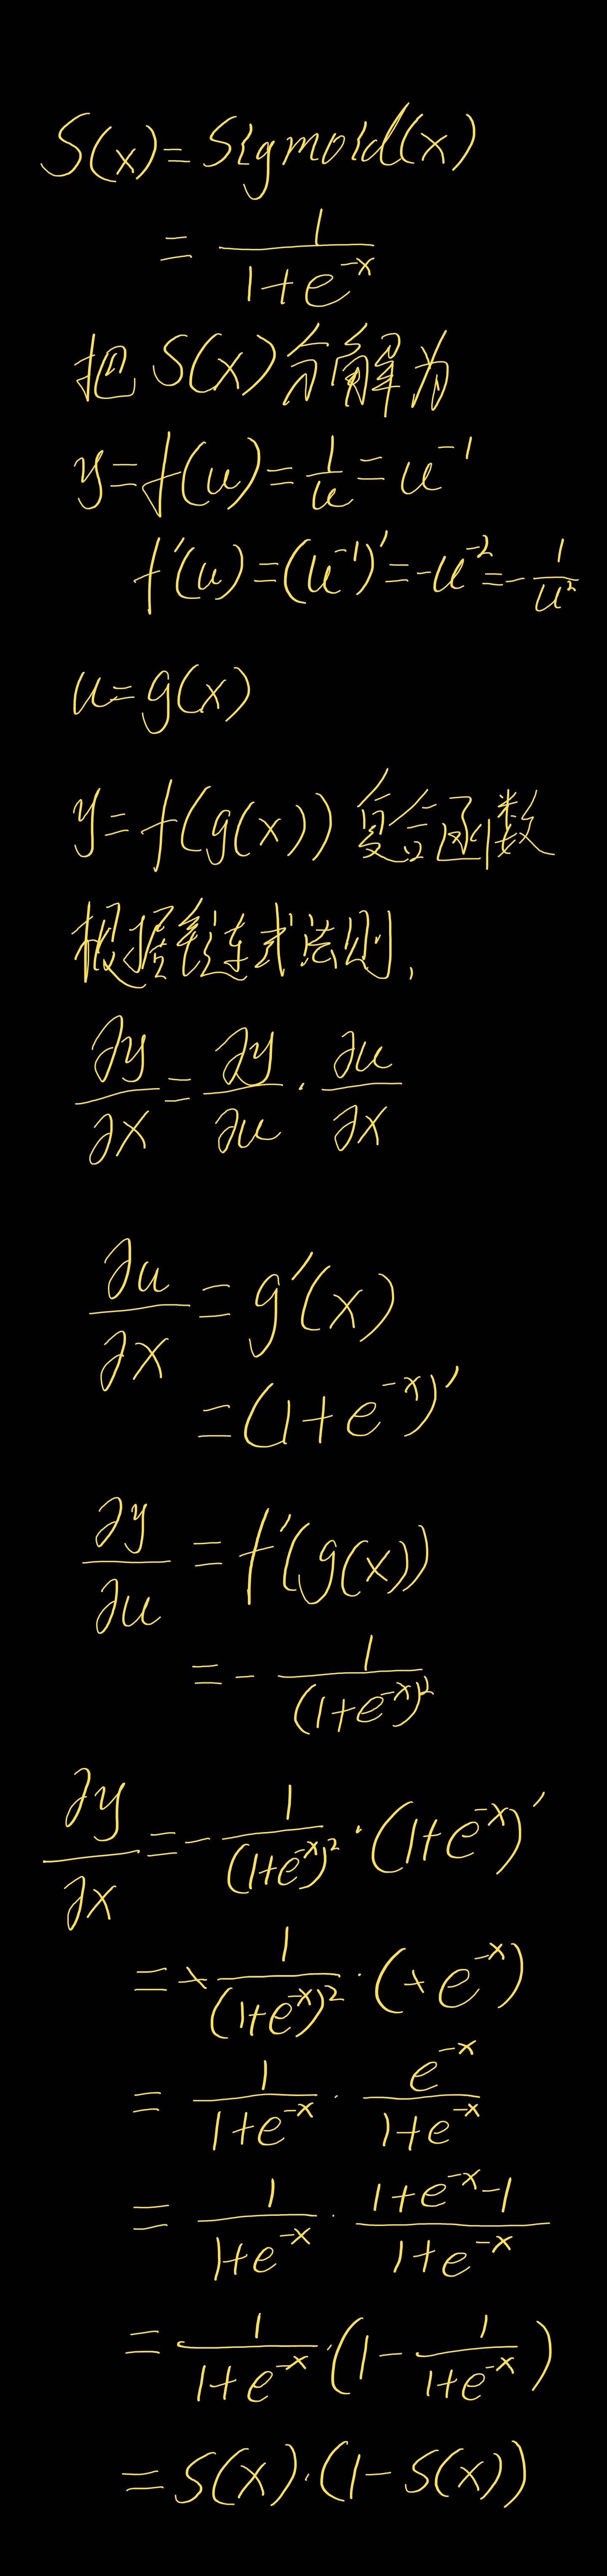 S(x) = Sigmoid(x)
= \frac{1}{1+e^{-x}}
把 S(x) 分解为
y = f(u) = \frac{1}{u} = u^{-1}
f'(u) = (u^{-1})' = -u^{-2} = -\frac{1}{u^2}
u = g(x)
y = f(g(x)) 复合函数
根据链式法则,
\frac{∂y}{∂x} = \frac{∂y}{∂u} · \frac{∂u}{∂x}
\frac{∂u}{∂x} = g'(x)
= (1+e^{-x})'
\frac{∂y}{∂u} = f'(g(x))
= -\frac{1}{(1+e^{-x})^2}
\frac{∂y}{∂x} = -\frac{1}{(1+e^{-x})^2} · (1+e^{-x})'
= +\frac{1}{(1+e^{-x})^2} · (+e^{-x})
= \frac{1}{1+e^{-x}} · \frac{e^{-x}}{1+e^{-x}}
= \frac{1}{1+e^{-x}} · \frac{1+e^{-x}-1}{1+e^{-x}}
= \frac{1}{1+e^{-x}} · (1-\frac{1}{1+e^{-x}})
= S(x)·(1-S(x))